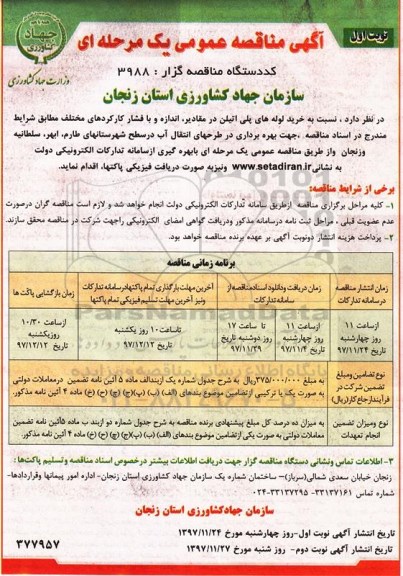 نوبت اول
آگهی مناقصه عمومی یک مرحله ای
کددستگاه مناقصه گزار : ۳۹۸۸
سازمان جهاد کشاورزی استان زنجان
جهاد کشاورزی
وزارت جهاد کشاورزی
در نظر دارد ، نسبت به خرید لوله های پلی اتیلن در مقادیر، اندازه و با فشار کارکردهای مختلف مطابق شرایط
مندرج در اسناد مناقصه ،جهت بهره برداری در طرحهای انتقال آب درسطح شهرستانهای طارم، ابهر، سلطانیه
وزنجان واز طریق مناقصه عمومی یک مرحله ای بابهره گیری ازسامانه تدارکات الکترونیکی دولت
به نشانی www.setadiran.ir ونیزبه صورت دریافت فیزیکی پاکتها، اقدام نماید.
برخی از شرایط مناقصه:
۱- کلیه مراحل برگزاری مناقصه ازطریق سامانه تدارکات الکترونیکی دولت انجام خواهد شد و لازم است مناقصه گران درصورت
عدم عضویت قبلی ، مراحل ثبت نامه درسامانه مذکور ودریافت گواهی امضای الکترونیکی راجهت شرکت در مناقصه محقق سازند.
۲- پرداخت هزینه انتشار دونوبت آگهی بر عهده برنده مناقصه خواهد بود.
برنامه زمانی مناقصه
زمان انتشار مناقصه درسامانه تدارکات
زمان دریافت ودانلود اسنادمناقصه از سامانه تدارکات
آخرین مهلت بارگذاری تمام پاکتهادرسامانه تدارکات ونیز آخرین مهلت تسلیم فیزیکی تمام پاکتها
زمان بازگشایی پاکت ها
ازساعت ۱۱ روز چهارشنبه تاریخ ۹۷/۱۱/۲۴
ازساعت ۱۱ روز چهارشنبه
تا ساعت ۱۷ روز دوشنبه تاریخ ۹۷/۱۱/۲۹
تاساعت ۱۰ روز یکشنبه تاریخ ۹۷/۱۲/۱۲
ازساعت ۱۰/۳۰ روزیکشنبه تاریخ ۹۷/۱۲/۱۲
نوع تضامین ومبلغ تضمین شرکت در فرآیندارجاع کار(ریال)
به مبلغ ۳۷۵/۰۰۰/۰۰۰ریال به شرح جدول شماره یک ازبندالف ماده ۵ آئین نامه تضمین درمعاملات دولتی
به صورت یک یا ترکیبی ازتضامین موضوع بندهای (الف) (ب) (پ)(ج) (چ) (ح) (خ) ماده ۴ آئین نامه مذکور.
نوع ومیزان تضمین انجام تعهدات
به میزان ده درصد کل مبلغ پیشنهادی برنده مناقصه به شرح جدول شماره دو ازبند ب ماده ۵آئین نامه تضمین
معاملات دولتی به صورت یکی ازتضامین موضوع بندهای (الف) (ب) (پ)(ج) (چ) (ح) (خ) ماده ۴ آئین نامه مذکور.
۳- اطلاعات تماس ونشانی دستگاه مناقصه گزار جهت دریافت اطلاعات بیشتر درخصوص اسناد مناقصه وتسلیم پاکت‌ها :
زنجان خیابان سعدی شمالی(سرباز)– ساختمان شماره یک سازمان جهاد کشاورزی استان زنجان- اداره امور پیمانها وقراردادها-
شماره تماس ۳۳۱۳۷۱۶۱ -۳۳۱۳۷۲۹۵-۰۲۴
سازمان جهادکشاورزی استان زنجان
تاریخ انتشار آگهی نوبت اول-روز چهارشنبه مورخ ۱۳۹۷/۱۱/۲۴
تاریخ انتشار آگهی نوبت دوم- روز شنبه مورخ ۱۳۹۷/۱۱/۲۷
۳۷۷۹۵۷